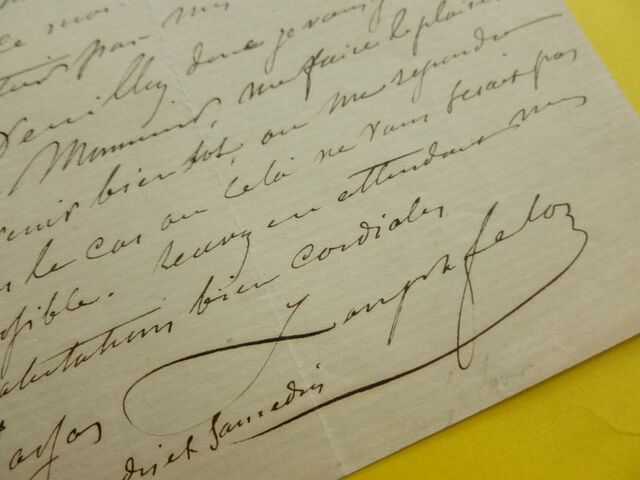 ce moi.
pas mis
Veuillez donc je vous
Monsieur, me faire le plaisir
venir bientot, ou me repondre
le cas ou cela ne vous serait pas
possible. Recevez en attendant mes
salutations bien cordiales
Joseph felon
et Samedis